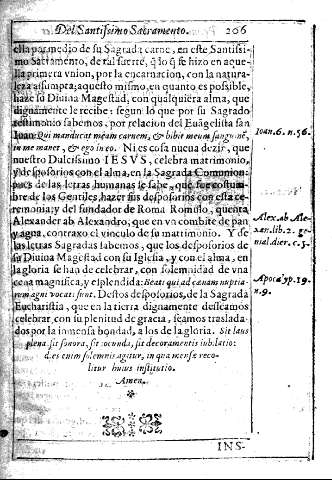 Del Santissimo Sacramento. 206
ella por medio de su Sagrada carne, en este Santissi-
mo Sacramento, de tal suerte, q̃ lo q̃ se hizo en aque-
lla primera vnion, por la encarnacion, con la natura-
leza assumpta; aquesto mismo, en quanto es possible,
haze su Diuina Magestad, con qualquiera alma, que
dignamente le recibe: segun lo que por su Sagrado
testimonio sabemos, por relacion del Euãgelista san
Ioan. 6. n. 56.
Iuan Qui manducat meam carnem, & bibit meum sanguinẽ,
in me manet, & ego in eo. Ni es cosa nueva dezir, que
nuestro Dulcissimo IESVS, celebra matrimonio,
y desposorios con el alma, en la Sagrada Comunion:
pues de las letras humanas se sabe, que fue costum-
bre de los Gentiles, hazer sus desposorios con esta ce-
remonia; y del fundador de Roma Romulo, quenta
Alex. ab Ale-
xan. lib. 2. ge-
nial. dier. c. 5.
Alexander ab Alexandro, que en vn combite de pan
y agua, contraxo el vinculo de su matrimonio. Y de
las letras Sagradas sabemos, que los desposorios de
su Diuina Magestad con su Iglesia, y con el alma, en
la gloria se han de celebrar, con solemnidad de vna
Apocalyp. 19.
n. 9.
cena magnifica, y esplendida: Beati qui ad cœnam nuptia-
rum agni vocati sunt. Destos desposorios, de la Sagrada
Eucharistia, que en la tierra dignamente desseamos
celebrar, con su plenitud de gracia, seamos traslada-
dos por la inmensa bondad, a los de la gloria. Sit laus
plena, sit sonora, sit iocunda, sit decora mentis iubilatio:
dies enim solemnis agitur, in qua mensæ reco-
litur huius institutio.
Amen.
INS-